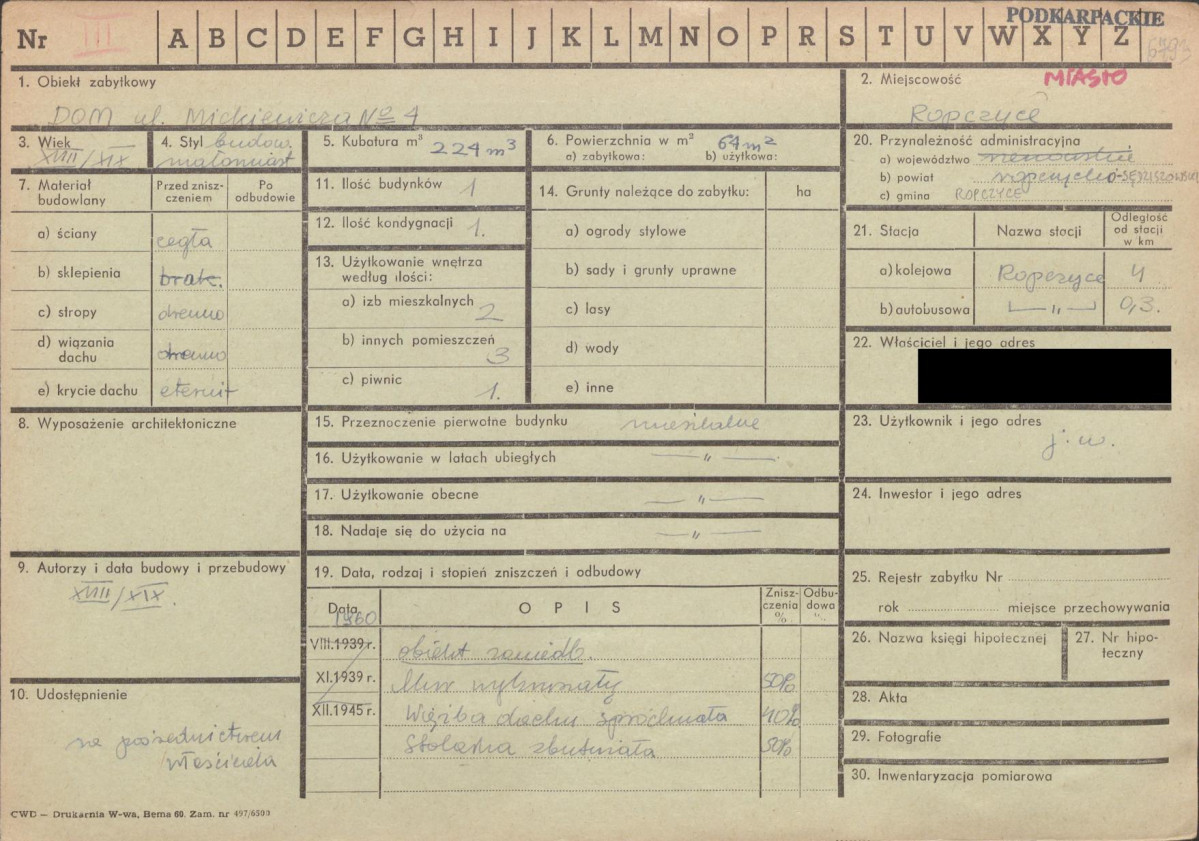 PODKARPACKIE
Nr III A B C D E F G H I J K L M N O P R S T U V W X Y Z 6793
1. Obiekt zabytkowy
DOM ul. Mickiewicza № 4
2. Miejscowość MIASTO
Ropczyce
3. Wiek
XVIII/XIX
4. Styl budow.
małomiast
5. Kubatura m³ 224 m³
6. Powierzchnia w m² 64 m²
a) zabytkowa: b) użytkowa:
20. Przynależność administracyjna
a) województwo rzeszowskie
b) powiat ropczycko-SĘDZISZOWSKI
c) gmina ROPCZYCE
7. Materiał budowlany
Przed zniszczeniem
Po odbudowie
a) ściany cegła
b) sklepienia brak.
c) stropy drewno
d) wiązania dachu drewno
e) krycie dachu eternit
11. Ilość budynków 1
12. Ilość kondygnacji 1.
13. Użytkowanie wnętrza
według ilości:
a) izb mieszkalnych 2
b) innych pomieszczeń 3
c) piwnic 1.
14. Grunty należące do zabytku: ha
a) ogrody stylowe
b) sady i grunty uprawne
c) lasy
d) wody
e) inne
21. Stacja
Nazwa stacji
Odległość od stacji w km
a) kolejowa Ropczyce 4
b) autobusowa — „ — 0,3.
22. Właściciel i jego adres
8. Wyposażenie architektoniczne
15. Przeznaczenie pierwotne budynku mieszkalne
16. Użytkowanie w latach ubiegłych — „ —
17. Użytkowanie obecne — „ —
18. Nadaje się do użycia na — „ —
23. Użytkownik i jego adres
j. w.
24. Inwestor i jego adres
9. Autorzy i data budowy i przebudowy
XVIII/XIX.
19. Data, rodzaj i stopień zniszczeń i odbudowy
Data OPIS Zniszczenia % Odbudowa %
1960
VIII.1939 r. obiekt zaniedb.
XI.1939 r. Mur wykruszały 50%
XII.1945 r. Więźba dachu spróchniała 40%
Stolarka zbutwiała 50%
25. Rejestr zabytku Nr
rok miejsce przechowywania
26. Nazwa księgi hipotecznej
27. Nr hipoteczny
28. Akta
29. Fotografie
30. Inwentaryzacja pomiarowa
10. Udostępnienie
za pośrednictwem
właściciela
CWD — Drukarnia W-wa, Bema 60. Zam. nr 497/6500